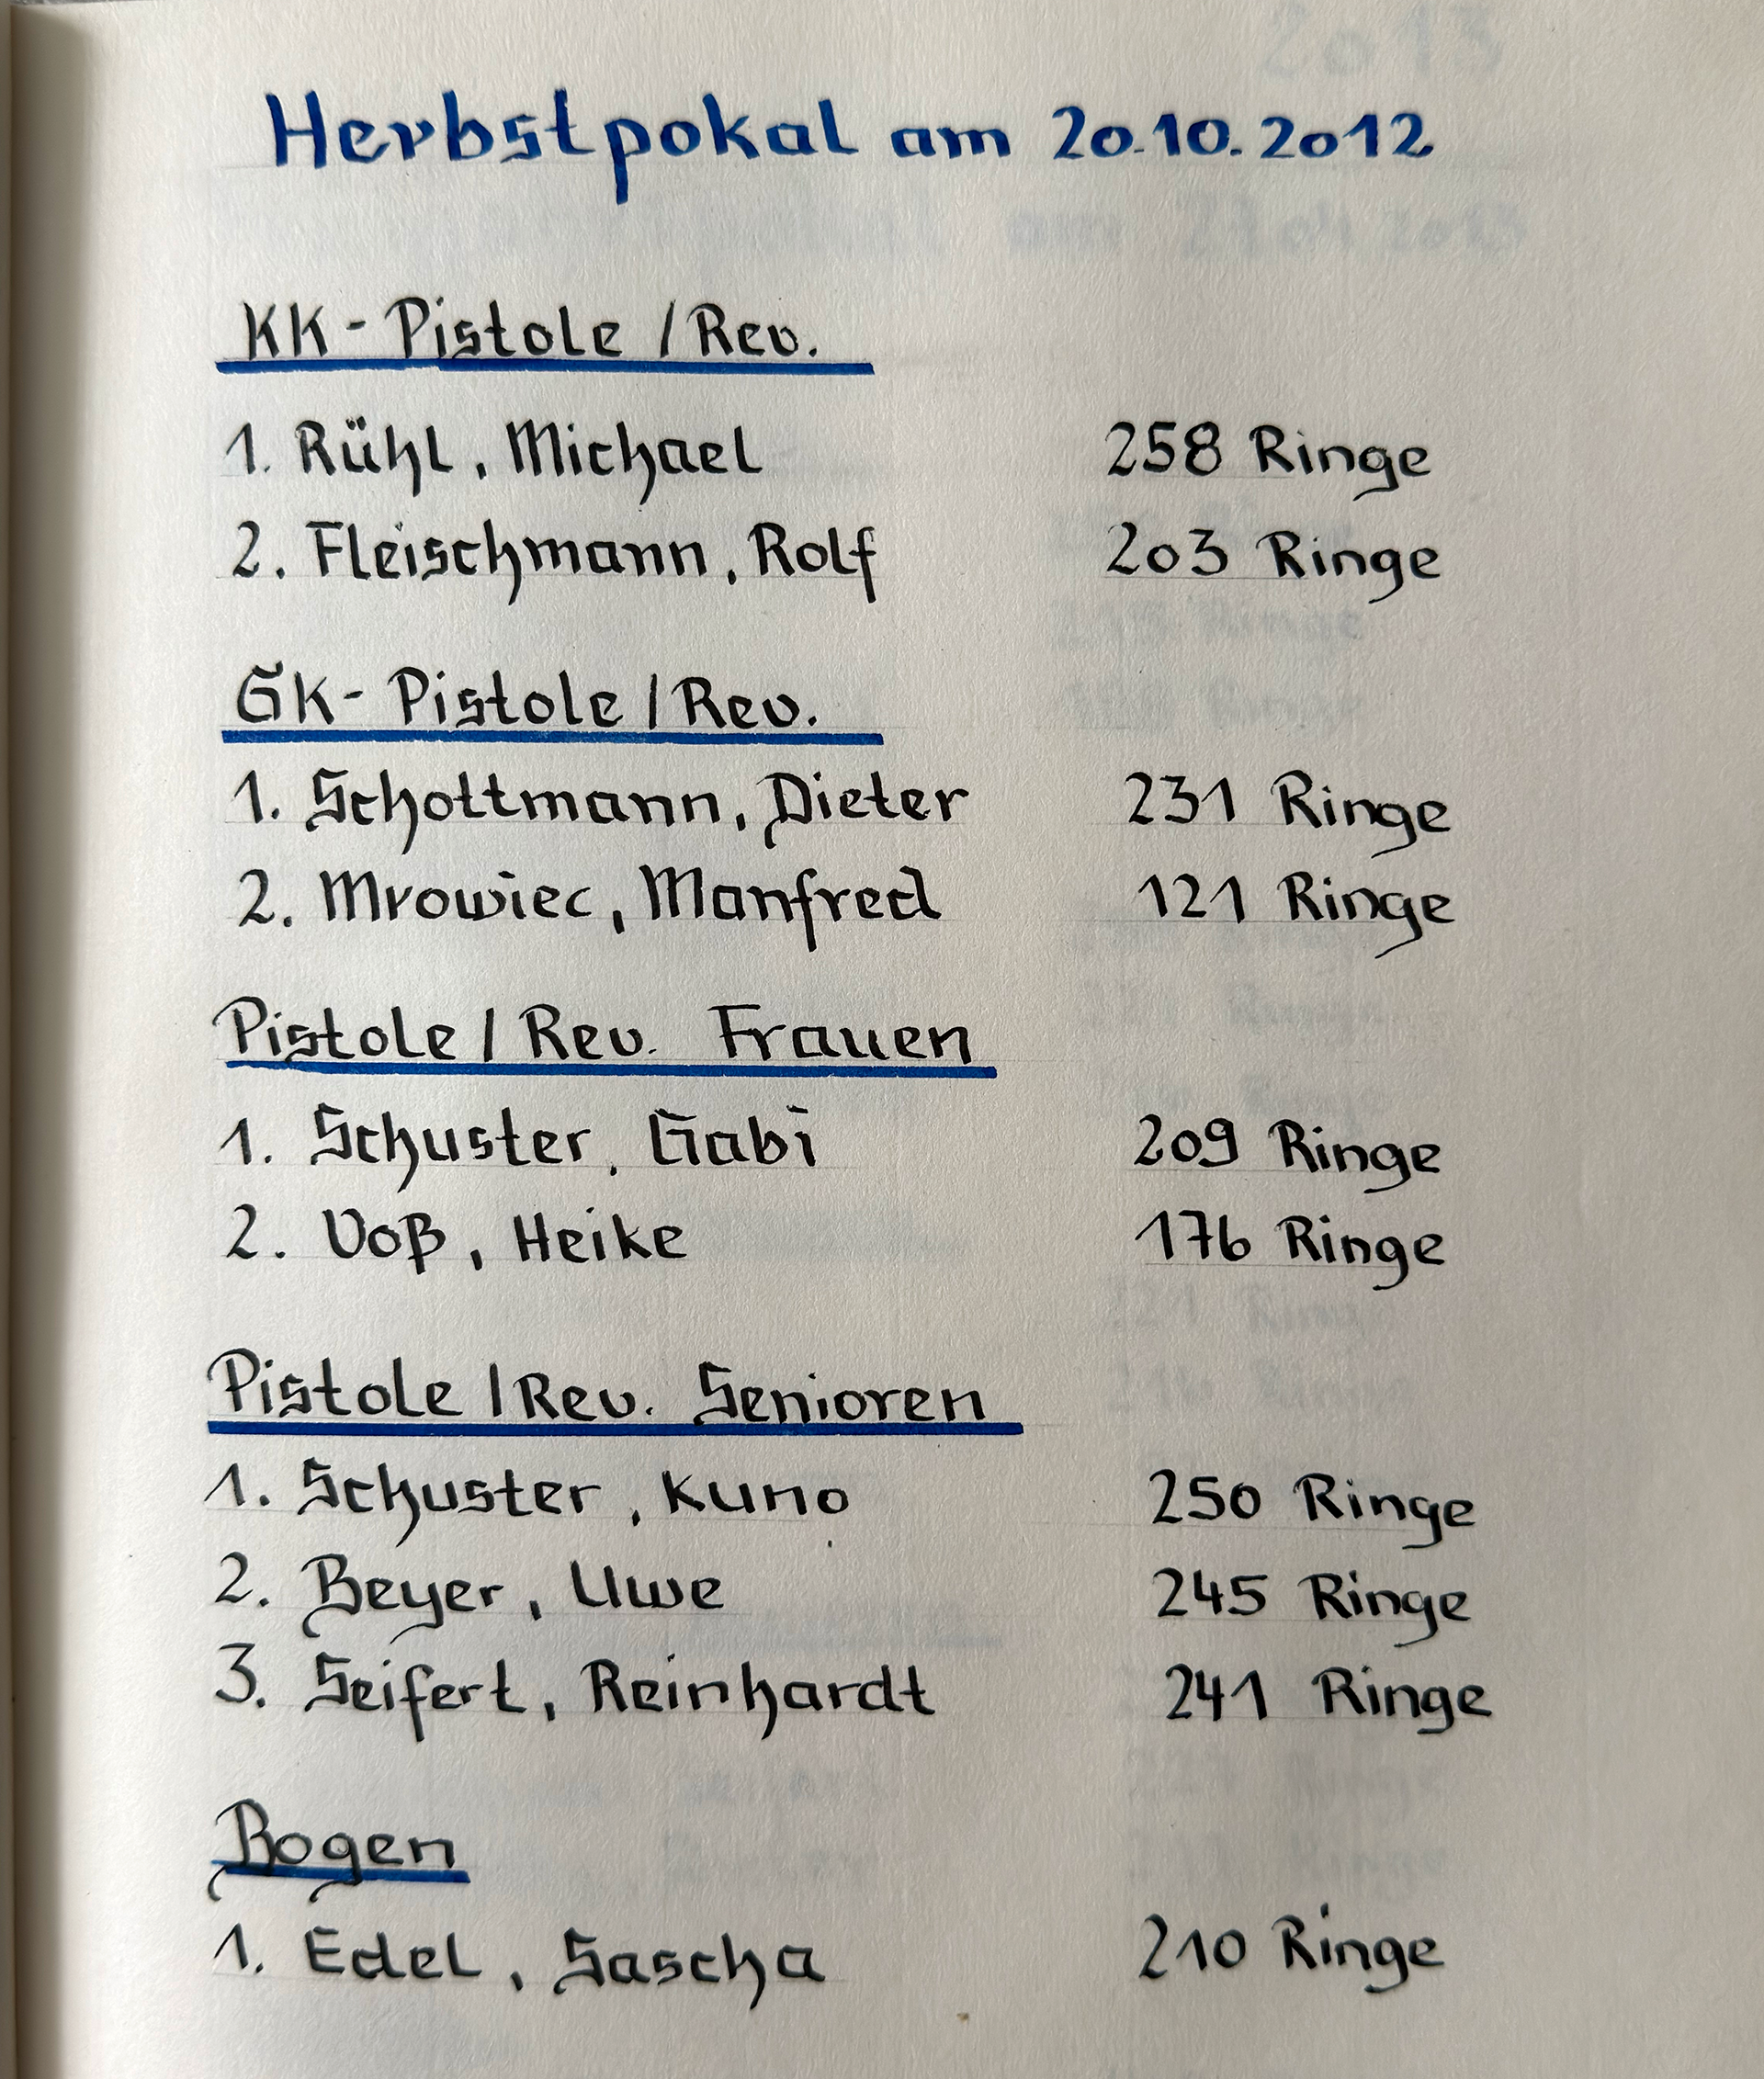 Herbstpokal am 20.10.2012
KK-Pistole/Rev.
1. Rühl, Michael 258 Ringe
2. Fleischmann, Rolf 203 Ringe
GK-Pistole/Rev.
1. Schottmann, Dieter 231 Ringe
2. Mrowiec, Manfred 121 Ringe
Pistole/Rev. Frauen
1. Schuster, Gabi 209 Ringe
2. Voß, Heike 176 Ringe
Pistole/Rev. Senioren
1. Schuster, Kuno 250 Ringe
2. Beyer, Uwe 245 Ringe
3. Seifert, Reinhardt 241 Ringe
Bogen
1. Edel, Sascha 210 Ringe